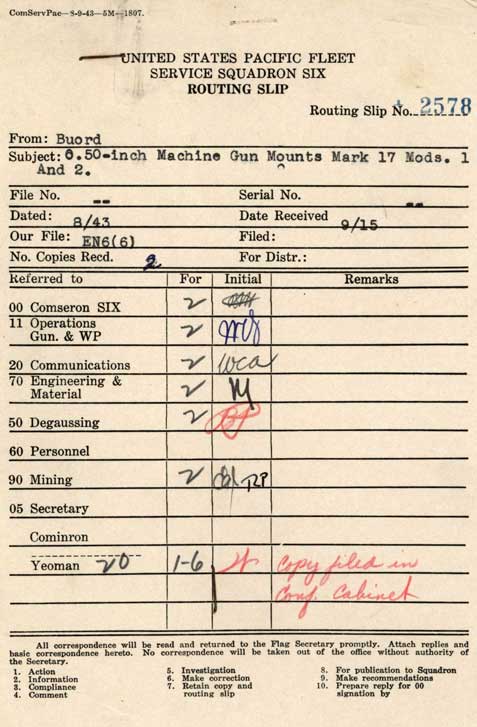 ComServPac—8-9-43—5M—1807.
UNITED STATES PACIFIC FLEET
SERVICE SQUADRON SIX
ROUTING SLIP
Routing Slip No. 2578
From: Buord
Subject: 0.50-inch Machine Gun Mounts Mark 17 Mods. 1
And 2.
File No. -- Serial No. --
Dated: 8/43 Date Received 9/15
Our File: EN6(6) Filed:
No. Copies Recd. 2 For Distr.:
Referred to For Initial Remarks
00 Comseron SIX 2
11 Operations
Gun. & WP 2
20 Communications 2 wca
70 Engineering &
Material 2 M
50 Degaussing 2
60 Personnel
90 Mining 2 RP
05 Secretary
Cominron
Yeoman 20 1-6 Copy filed in
Conf. Cabinet
All correspondence will be read and returned to the Flag Secretary promptly. Attach replies and
basic correspondence hereto. No correspondence will be taken out of the office without authority of
the Secretary.
1. Action 5. Investigation 8. For publication to Squadron
2. Information 6. Make correction 9. Make recommendations
3. Compliance 7. Retain copy and 10. Prepare reply for 00
4. Comment routing slip signation by